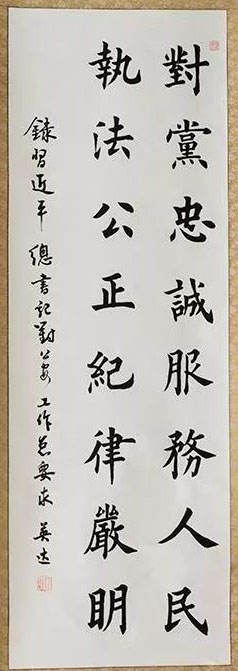 對黨忠誠服務人民
執法公正紀律嚴明
錄習近平總書記對公安工作總要求 英達